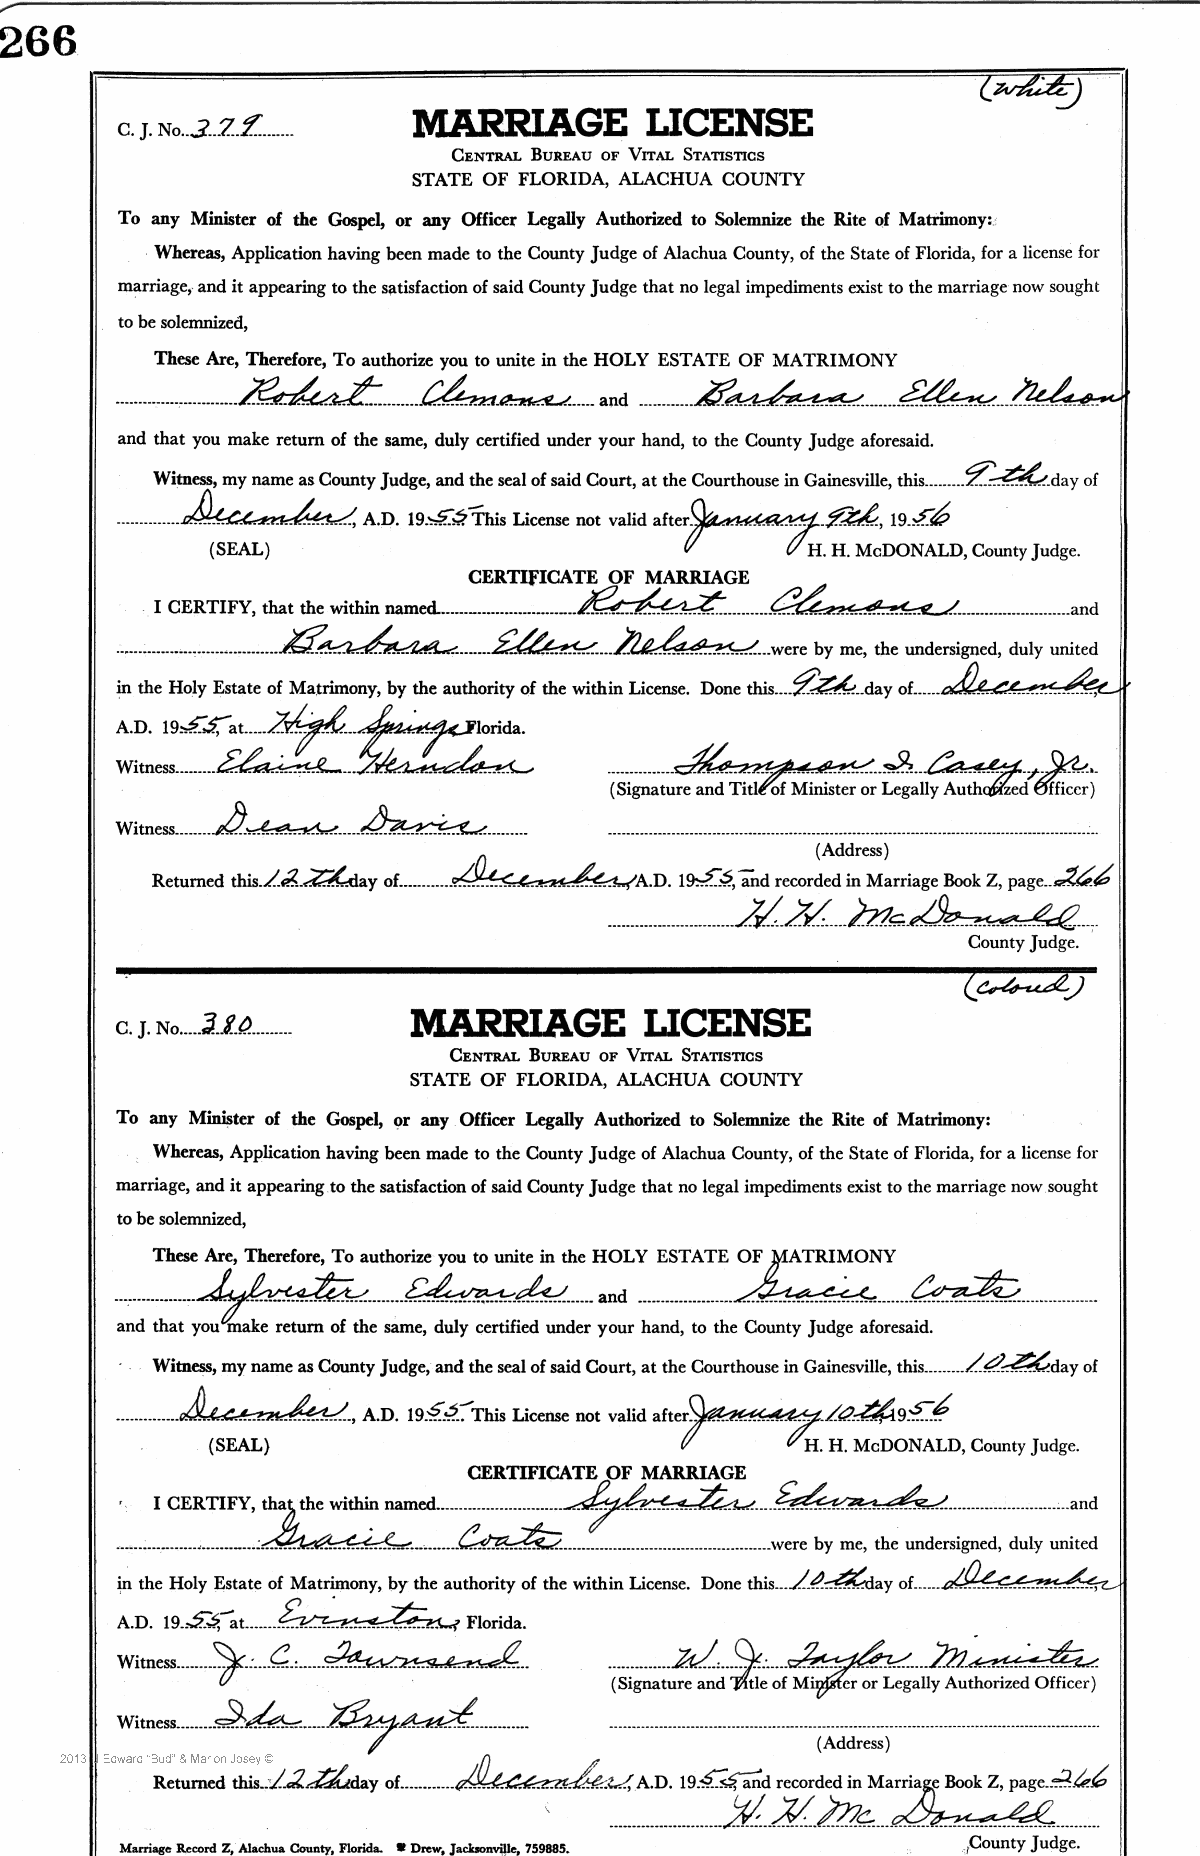 266
(white)
C. J. No. 379 MARRIAGE LICENSE
CENTRAL BUREAU OF VITAL STATISTICS
STATE OF FLORIDA, ALACHUA COUNTY
To any Minister of the Gospel, or any Officer Legally Authorized to Solemnize the Rite of Matrimony:
Whereas, Application having been made to the County Judge of Alachua County, of the State of Florida, for a license for
marriage, and it appearing to the satisfaction of said County Judge that no legal impediments exist to the marriage now sought
to be solemnized,
These Are, Therefore, To authorize you to unite in the HOLY ESTATE OF MATRIMONY
Robert Clemons and Barbara Ellen Nelson
and that you make return of the same, duly certified under your hand, to the County Judge aforesaid.
Witness, my name as County Judge, and the seal of said Court, at the Courthouse in Gainesville, this 9th day of
December, A.D. 1955 This License not valid after January 9th, 1956
(SEAL) H. H. McDONALD, County Judge.
CERTIFICATE OF MARRIAGE
I CERTIFY, that the within named Robert Clemons and
Barbara Ellen Nelson were by me, the undersigned, duly united
in the Holy Estate of Matrimony, by the authority of the within License. Done this 9th day of December,
A.D. 1955, at High Springs, Florida.
Witness Elaine Herndon Thompson I. Casey, Jr.
(Signature and Title of Minister or Legally Authorized Officer)
Witness Dean Davis
(Address)
Returned this 12th day of December, A.D. 1955, and recorded in Marriage Book Z, page 266
H. H. McDonald
County Judge.
(Colored)
C. J. No. 380 MARRIAGE LICENSE
CENTRAL BUREAU OF VITAL STATISTICS
STATE OF FLORIDA, ALACHUA COUNTY
To any Minister of the Gospel, or any Officer Legally Authorized to Solemnize the Rite of Matrimony:
Whereas, Application having been made to the County Judge of Alachua County, of the State of Florida, for a license for
marriage, and it appearing to the satisfaction of said County Judge that no legal impediments exist to the marriage now sought
to be solemnized,
These Are, Therefore, To authorize you to unite in the HOLY ESTATE OF MATRIMONY
Sylvester Edwards and Gracie Coats
and that you make return of the same, duly certified under your hand, to the County Judge aforesaid.
Witness, my name as County Judge, and the seal of said Court, at the Courthouse in Gainesville, this 10th day of
December, A.D. 1955. This License not valid after January 10th, 1956
(SEAL) H. H. McDONALD, County Judge.
CERTIFICATE OF MARRIAGE
I CERTIFY, that the within named Sylvester Edwards and
Gracie Coats were by me, the undersigned, duly united
in the Holy Estate of Matrimony, by the authority of the within License. Done this 10th day of December,
A.D. 1955, at Evinston, Florida.
Witness J. C. Townsend W. J. Taylor Minister
(Signature and Title of Minister or Legally Authorized Officer)
Witness Ida Bryant
(Address)
2013 J Edward "Bud" & Marion Josey ©
Returned this 12th day of December, A.D. 1955, and recorded in Marriage Book Z, page 266
H. H. McDonald
County Judge.
Marriage Record Z, Alachua County, Florida. Drew, Jacksonville, 759885.